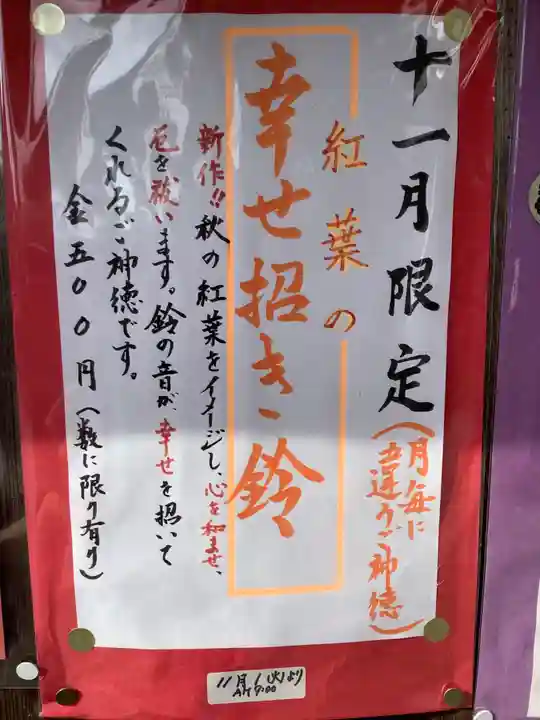 十一月限定
(月毎に違うご神徳)
紅葉の
幸せ招き鈴
新作!!秋の紅葉をイメージし、心を和ませ、
厄を祓います。鈴の音が、幸せを招いて
くれるご神徳です。
金五〇〇円(数に限り有り)
11月1(火)より
AM9:00